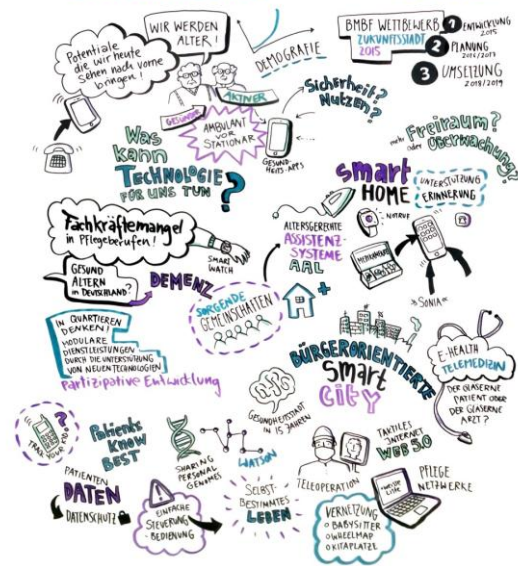 Potentiale
die wir heute
sehen nach vorne
bringen!
WIR WERDEN
ÄLTER!
DEMOGRAFIE
BMBF WETTBEWERB
ZUKUNFTSSTADT
2015
1 ENTWICKLUNG
2015
2 PLANUNG
2016/2017
3 UMSETZUNG
2018/2019
GESÜNDER
AKTIVER
AMBULANT
VOR
STATIONÄR
GESUND-
HEITS-APPS
Sicherheit?
Nutzen?
mehr Freiraum?
oder Überwachung?
Was
kann
TECHNOLOGIE
FÜR UNS TUN?
smart
HOME
UNTERSTÜTZUNG
ERINNERUNG
NOTRUF
MEDIKAMENTE
»SONIA«
Fachkräftemangel
in Pflegeberufen!
SMART
WATCH
ALTERSGERECHTE
ASSISTENZ-
SYSTEME
AAL
GESUND
ALTERN
IN DEUTSCHLAND?
DEMENZ
SORGENDE
GEMEINSCHAFTEN
IN QUARTIEREN
DENKEN!
MODULARE
DIENSTLEISTUNGEN
DURCH DIE UNTERSTÜTZUNG
VON NEUEN TECHNOLOGIEN
Partizipative Entwicklung
BÜRGERORIENTIERTE
Smart
City
E-HEALTH
TELEMEDIZIN
DER GLÄSERNE
PATIENT ODER
DER GLÄSERNE
ARZT?
GESUNDHEITSSTADT
IN 15 JAHREN
TRACK
YOUR KID?
Patients
Know
BEST
SHARING
PERSONAL
GENOMES
WATSON
TELEOPERATION
TAKTILES
INTERNET
WEB 5.0
PATIENTEN
DATEN
DATENSCHUTZ
EINFACHE
STEUERUNG
-BEDIENUNG
SELBST-
BESTIMMTES
LEBEN
VERNETZUNG
O BABYSITTER
O WHEELMAP
O KITAPLÄTZE
WEISSE
LISTE
PFLEGE
NETZWERKE